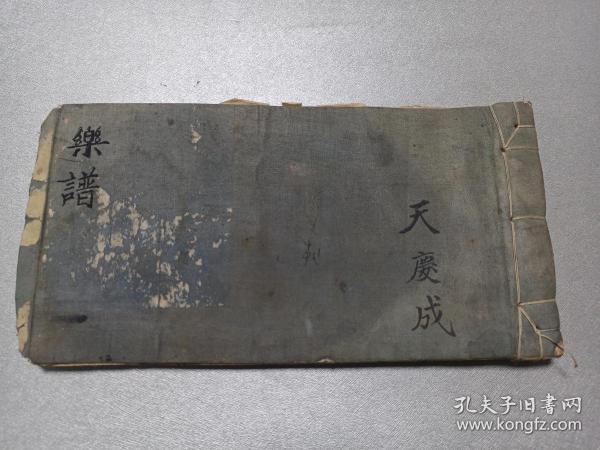 樂譜
天慶成
孔夫子旧書网
www.kongfz.com